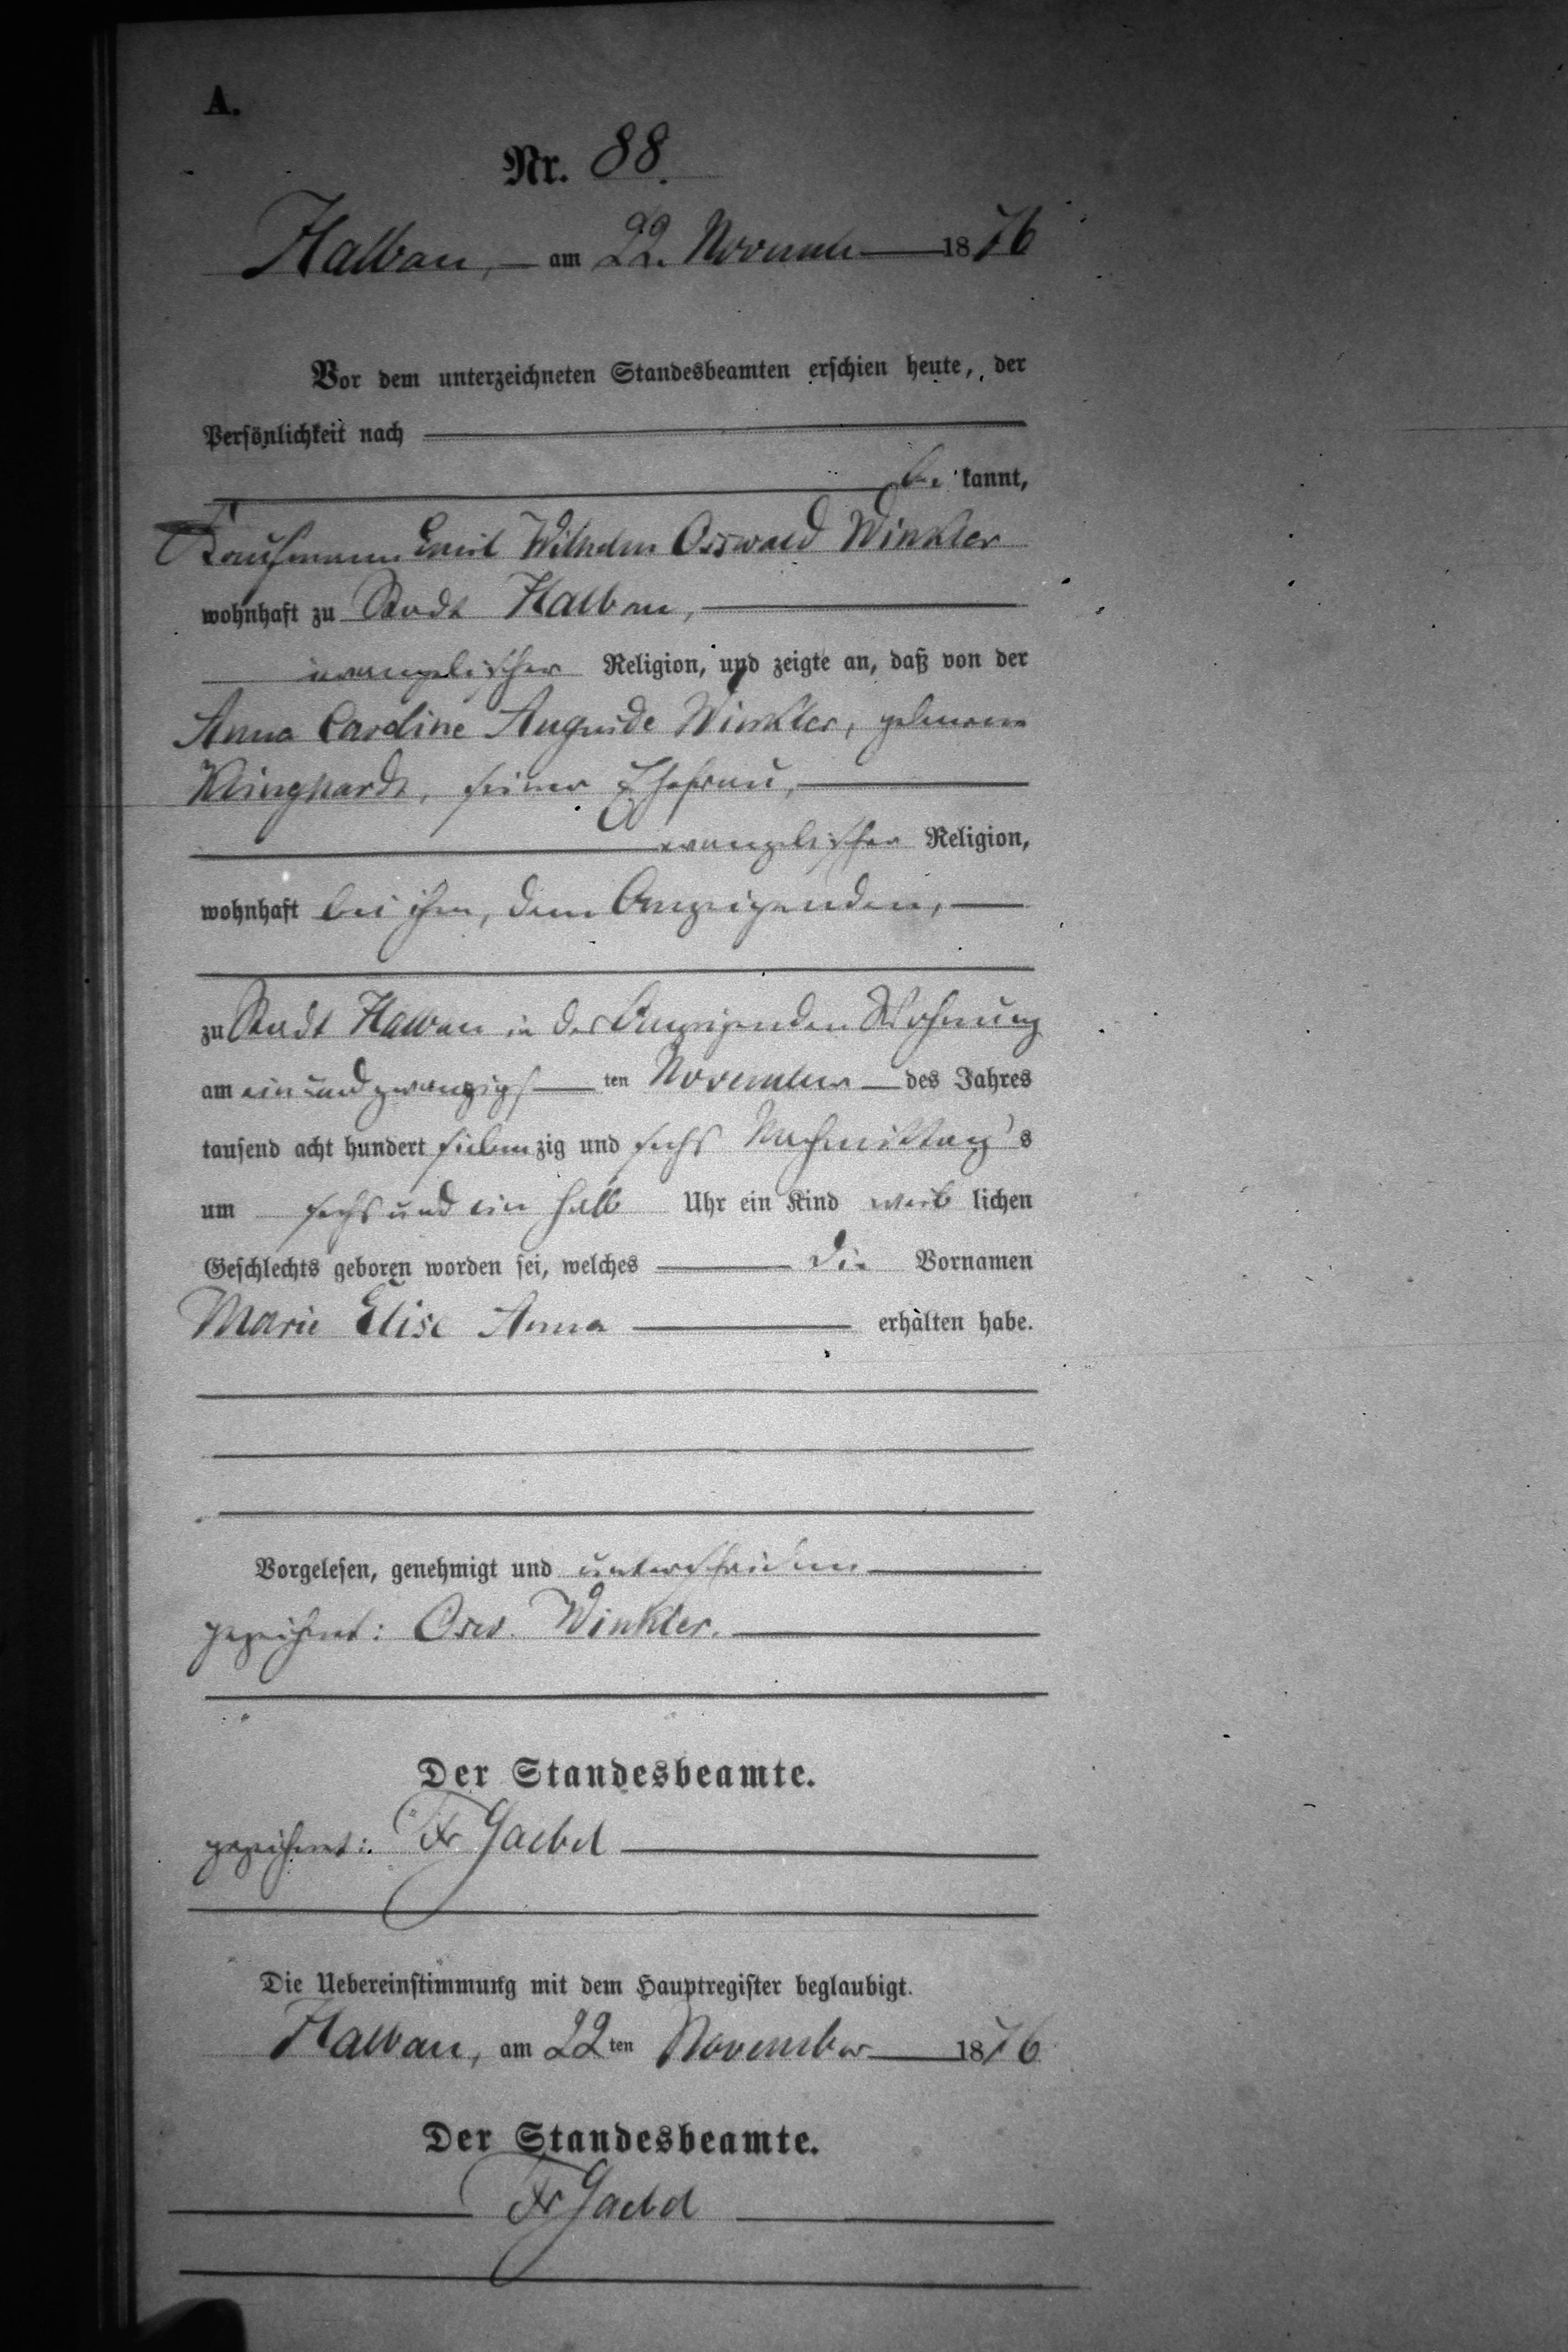 A.
Nr. 88.
Halbau, am 22. November 1876
Vor dem unterzeichneten Standesbeamten erschien heute, der
Persönlichkeit nach
be kannt,
Kaufmann Emil Wilhelm Osswald Winkler
wohnhaft zu Stadt Halbau,
evangelischer Religion, und zeigte an, daß von der
Anna Caroline Auguste Winkler, geborene
Klinghardt, seiner Ehefrau,
evangelischer Religion,
wohnhaft bei ihm, dem Anzeigenden,
zu Stadt Halbau in des Anzeigenden Wohnung
am ein und zwanzigs ten November des Jahres
tausend acht hundert siebenzig und sechs Nachmittag's
um sechs und ein halb Uhr ein Kind weib lichen
Geschlechts geboren worden sei, welches die Vornamen
Marie Elise Anna erhalten habe.
Vorgelesen, genehmigt und unterschrieben
gezeichnet: Osw. Winkler.
Der Standesbeamte.
gezeichnet: Fr Gaebel
Die Uebereinstimmung mit dem Hauptregister beglaubigt.
Halbau, am 22 ten November 1876
Der Standesbeamte.
Fr Gaebel